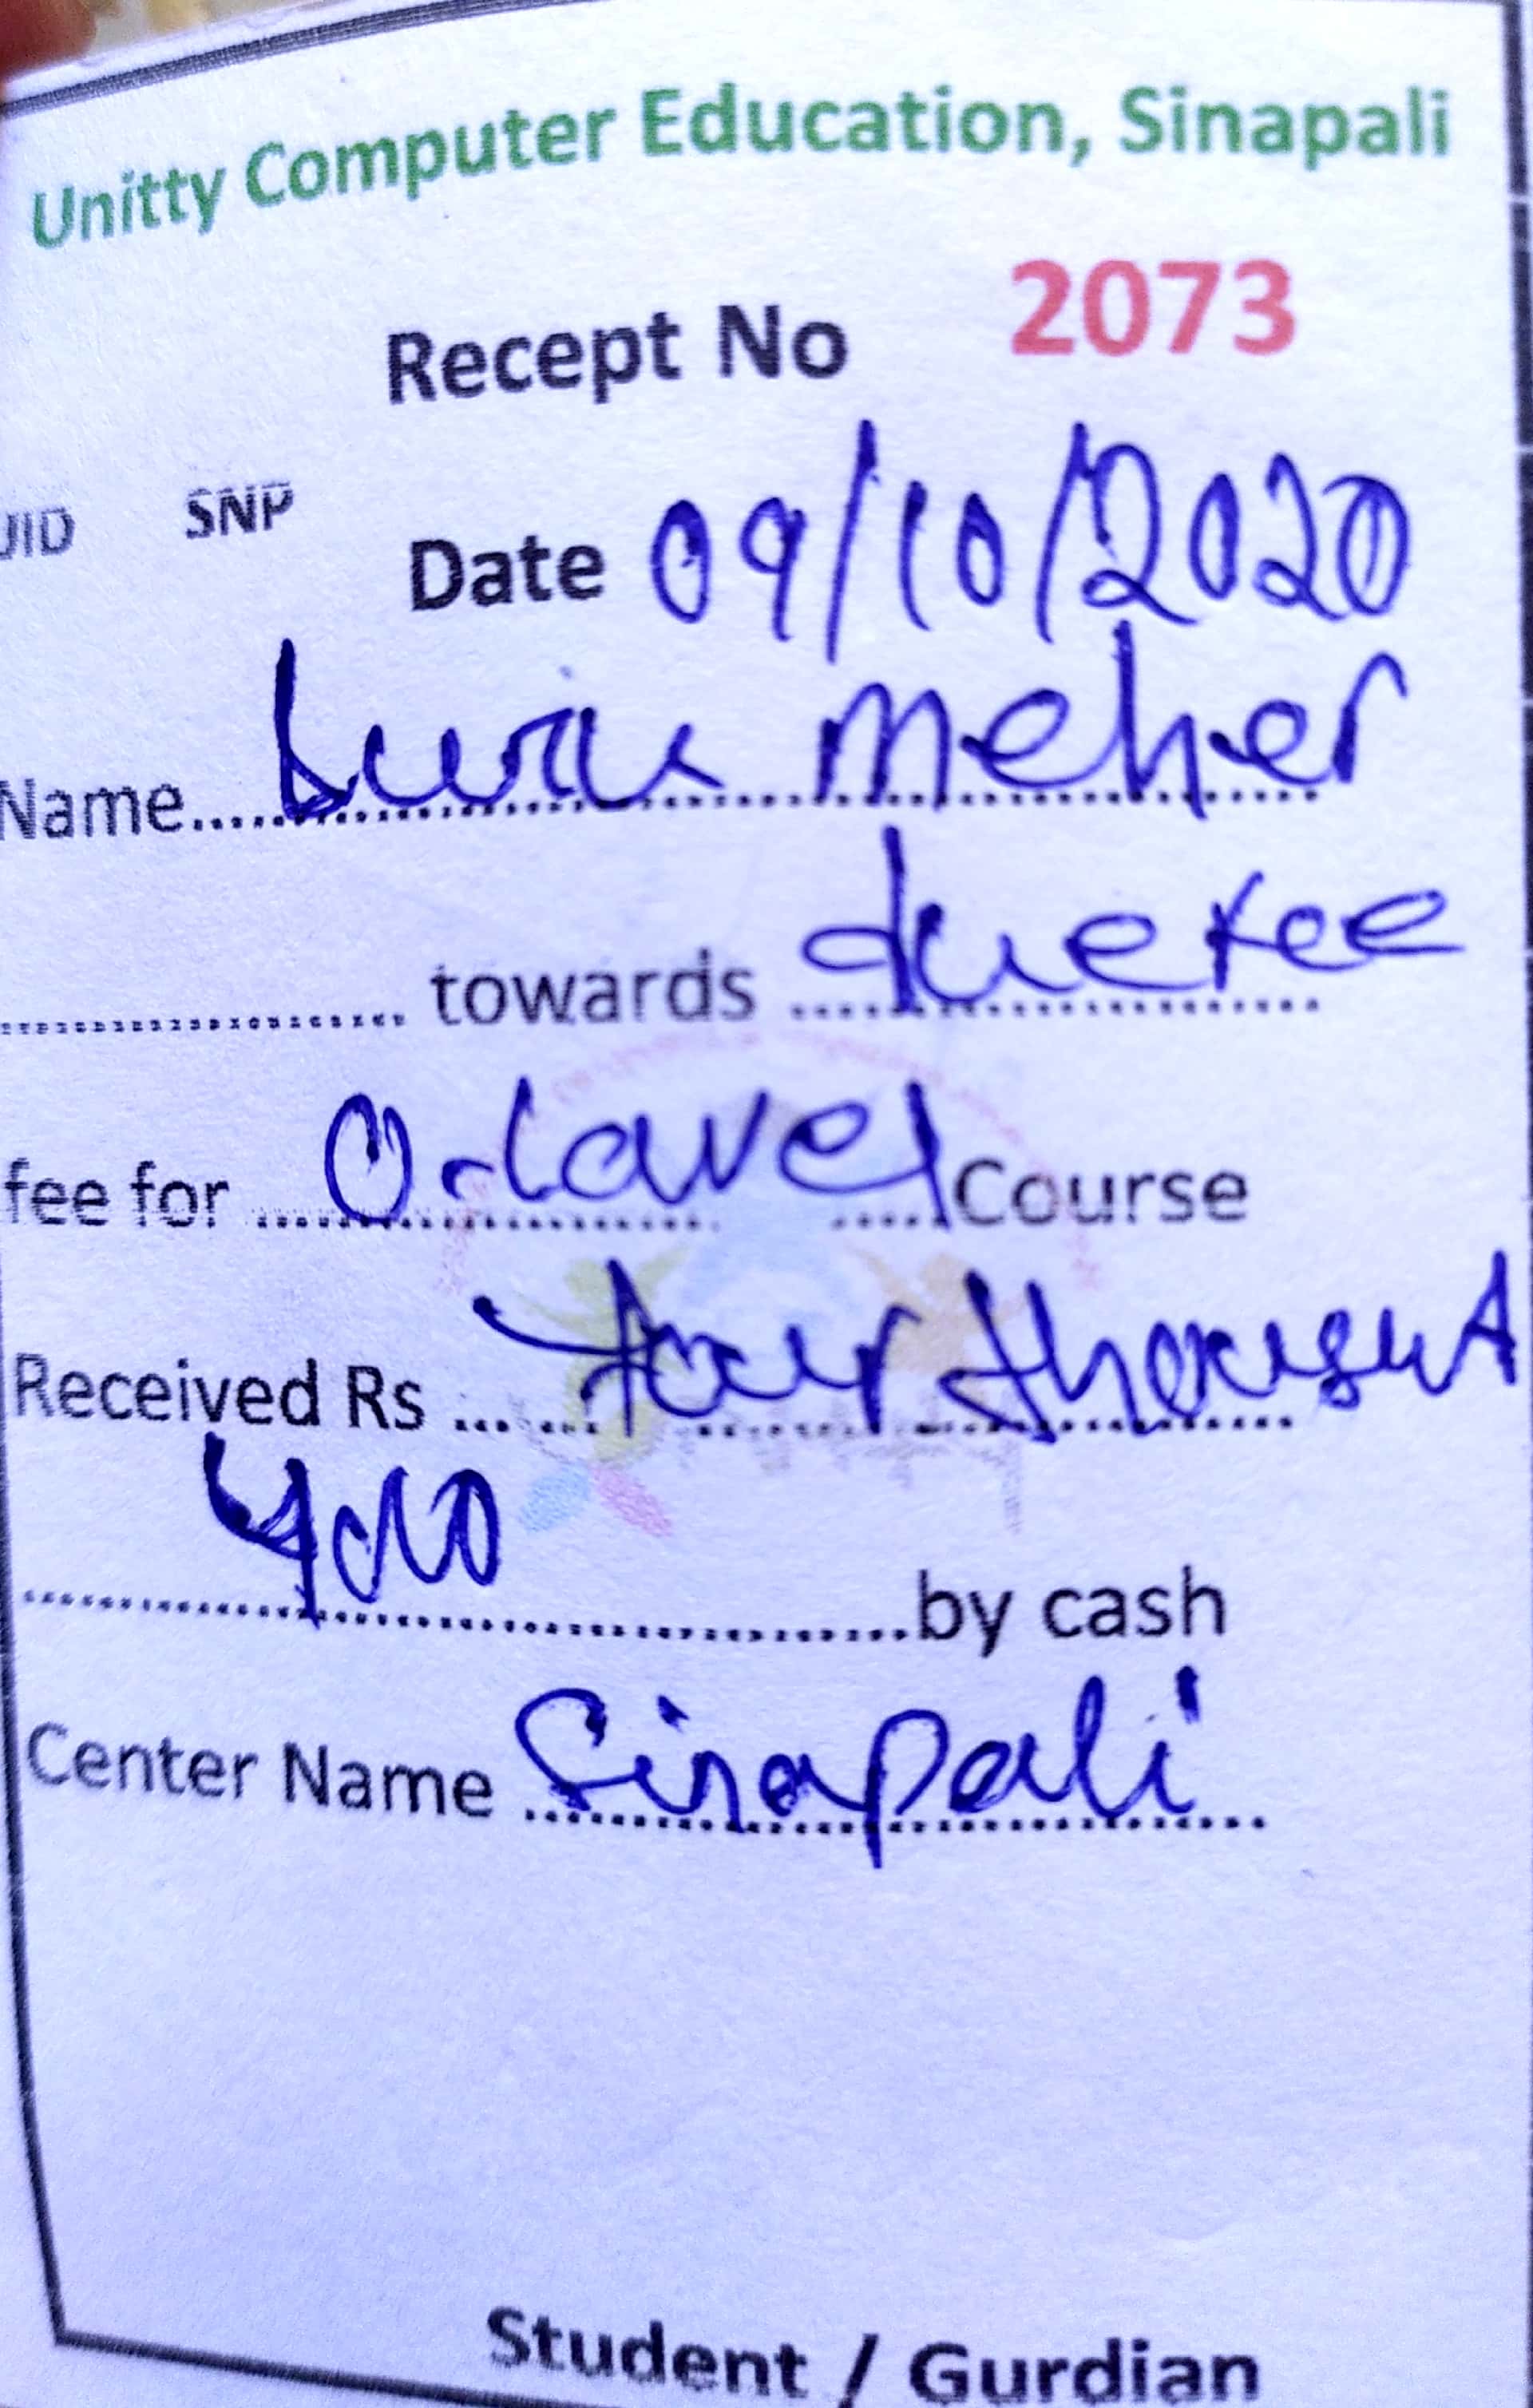 Unitty Computer Education, Sinapali
Recept No 2073
UID SNP
Date 09/10/2020
Name........ Meher
.................. towards duefee
fee for O-Lavel Course
Received Rs ... four thousand
4000 ..................by cash
Center Name Sinapali
Student / Gurdian